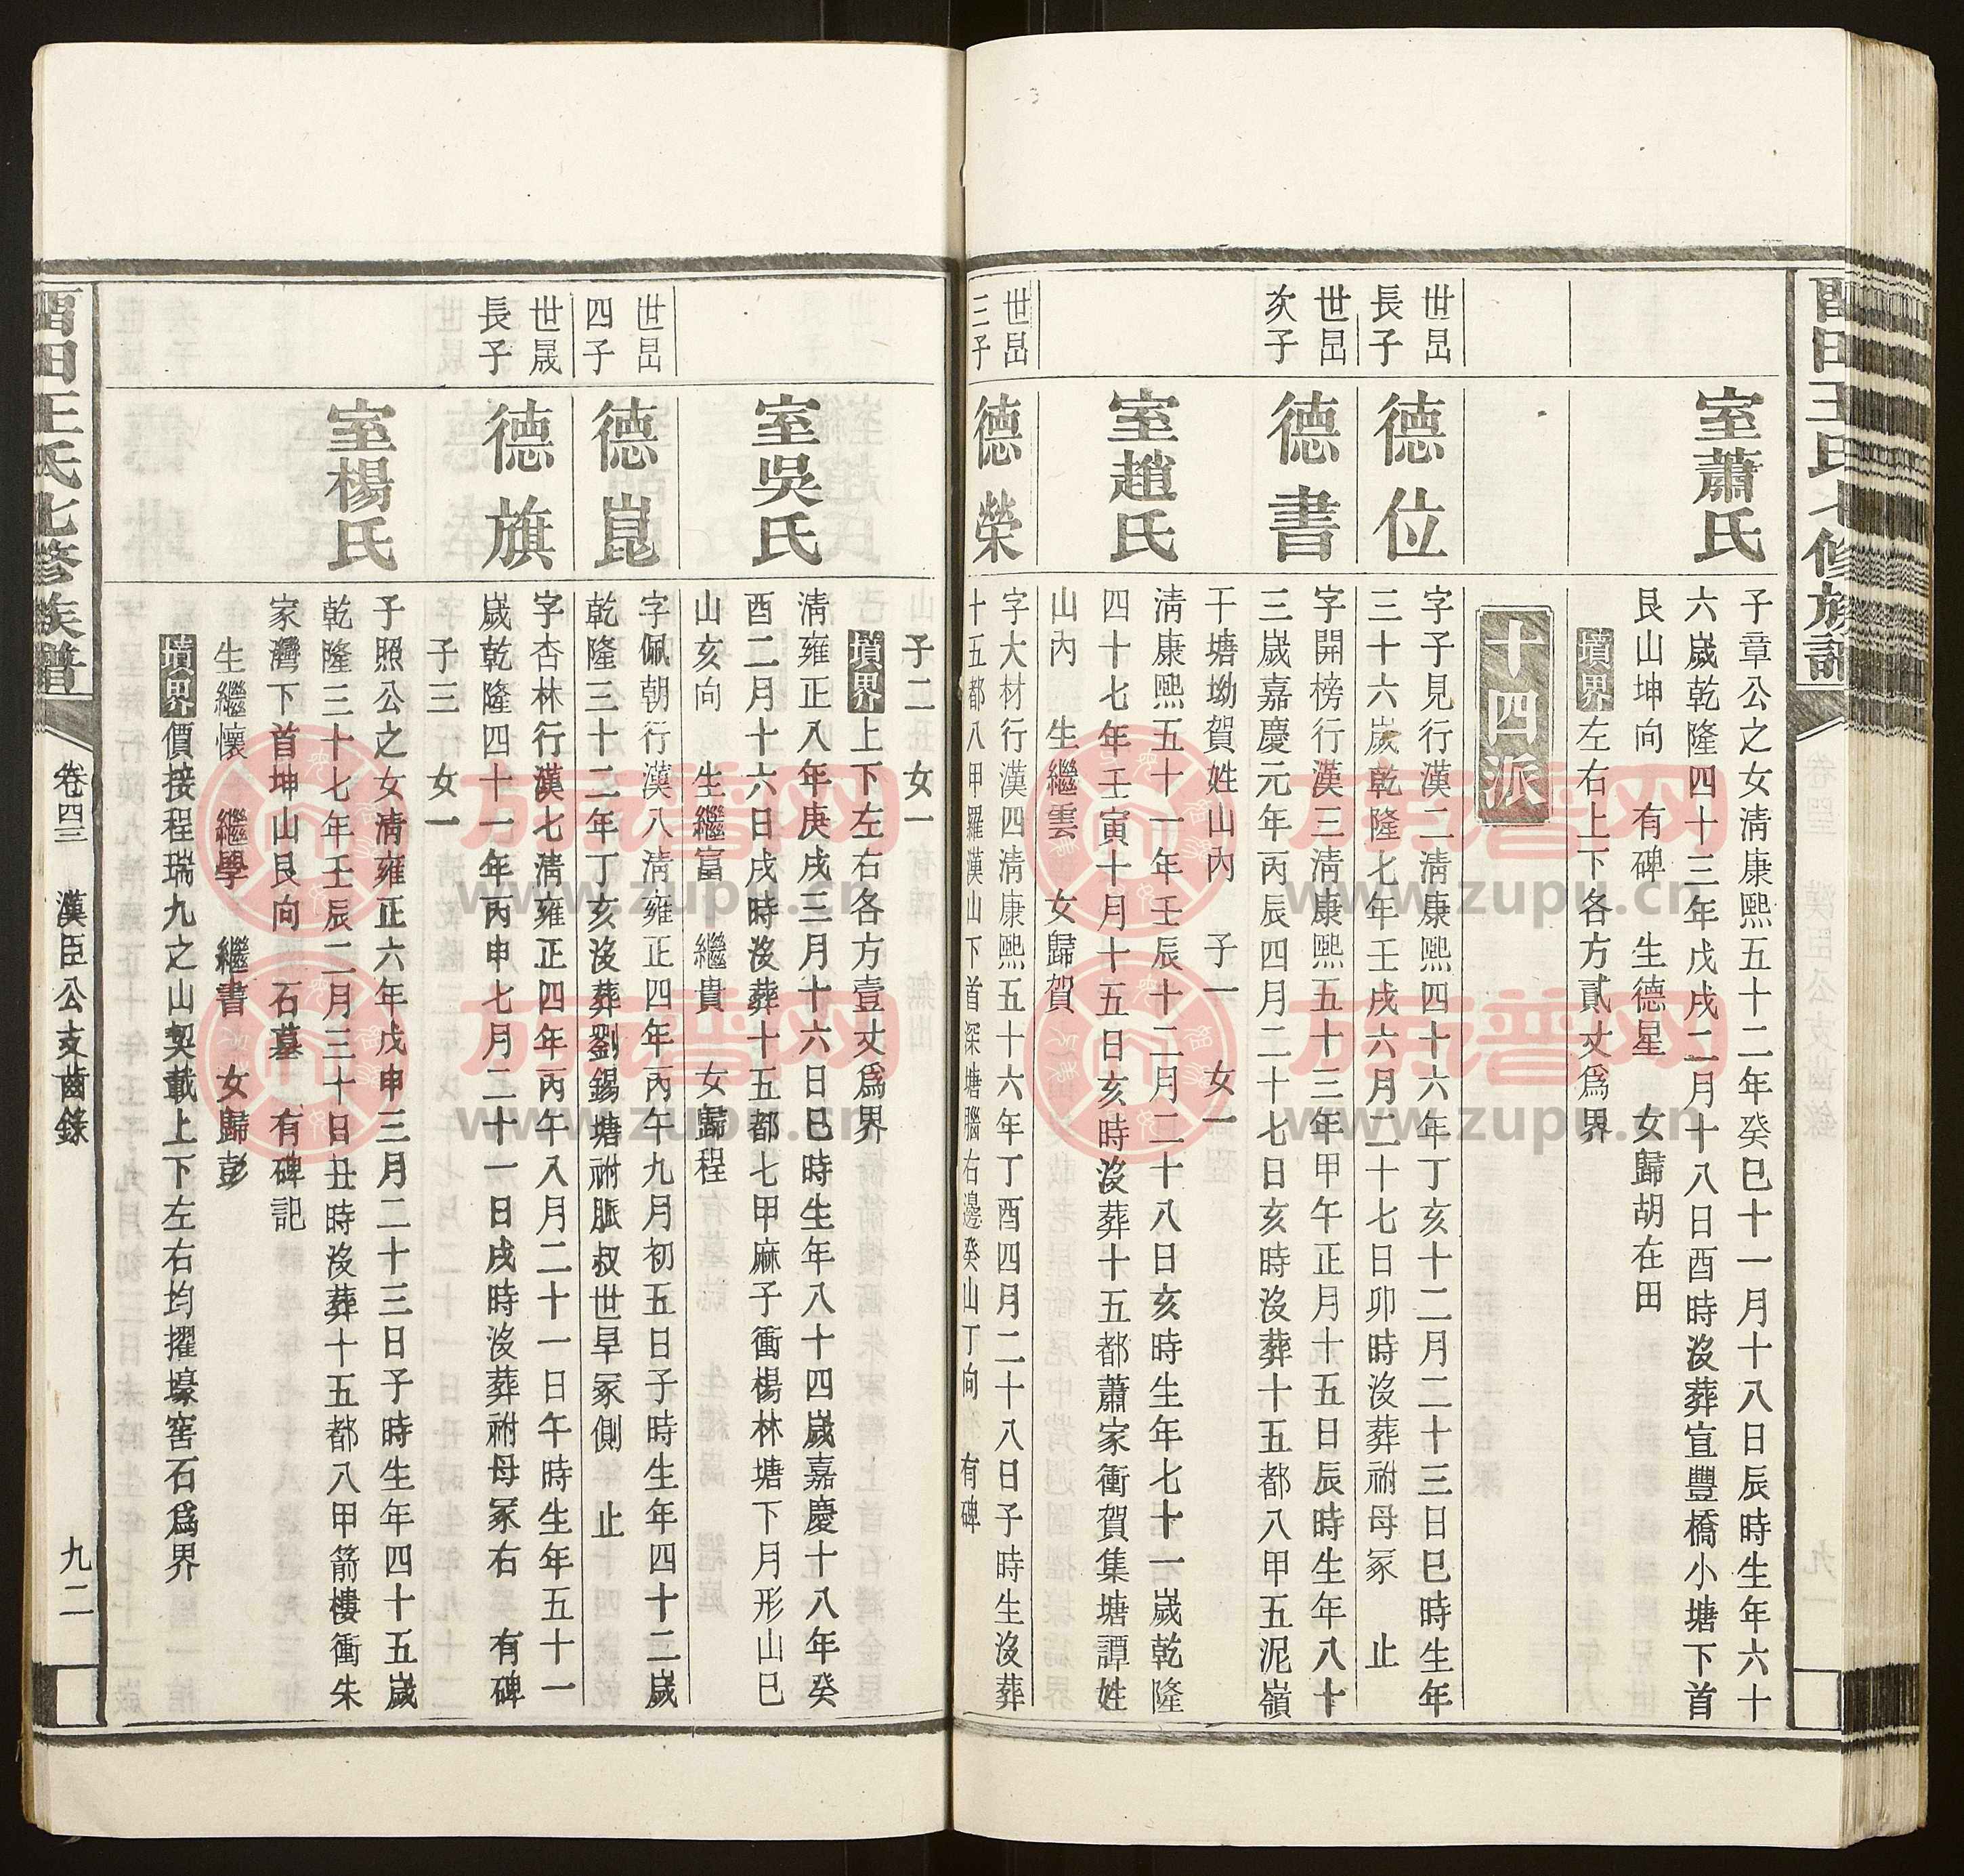 室蕭氏
子章公之女清康熙五十二年癸巳十一月十八日辰時生年六十
六歲乾隆四十三年戊戌二月十八日酉時沒葬宣豐橋小塘下首
艮山坤向 有碑 生德星 女歸胡在田
墳界左右上下各方貳丈爲界
十四派
世昌
長子
德位
字子見行漢二清康熙四十六年丁亥十二月二十三日巳時生年
三十六歲乾隆七年壬戌六月二十七日卯時沒葬祔母冢 止
世昌
次子
德書
字開榜行漢三清康熙五十三年甲午正月十五日辰時生年八十
三歲嘉慶元年丙辰四月二十七日亥時沒葬十五都八甲五泥嶺
干塘坳賀姓山內 子一 女一
室趙氏
清康熙五十一年壬辰十二月二十八日亥時生年七十一歲乾隆
四十七年壬寅十月十五日亥時沒葬十五都蕭家衝賀集塘譚姓
山內 生繼雲 女歸賀
世昌
三子
德榮
字大材行漢四清康熙五十六年丁酉四月二十八日子時生沒葬
十五都八甲羅漢山下首深塘腦右邊癸山丁向 有碑
子二 女一
墳界上下左右各方壹丈爲界
室吳氏
清雍正八年庚戌三月十六日巳時生年八十四歲嘉慶十八年癸
酉二月十六日戌時沒葬十五都七甲麻子衝楊林塘下月形山巳
山亥向 生繼富 繼貴 女歸程
世昌
四子
德崑
字佩朝行漢八清雍正四年丙午九月初五日子時生年四十二歲
乾隆三十二年丁亥沒葬劉錫塘祔脈叔世早冢側 止
世晟
長子
德旗
字杏林行漢七清雍正四年丙午八月二十一日午時生年五十一
歲乾隆四十一年丙申七月二十一日戌時沒葬祔母冢右 有碑
子三 女一
室楊氏
子照公之女清雍正六年戊申三月二十三日子時生年四十五歲
乾隆三十七年壬辰二月三十日丑時沒葬十五都八甲箭樓衝朱
家灣下首坤山艮向 石墓 有碑記
生繼懷 繼學 繼書 女歸彭
墳界價接程瑞九之山契載上下左右均擢壕窖石爲界
卷四三 漢臣公支齒錄
九二
族谱网
www.zupu.cn
族谱网
www.zupu.cn
族谱网
www.zupu.cn
族谱网
www.zupu.cn